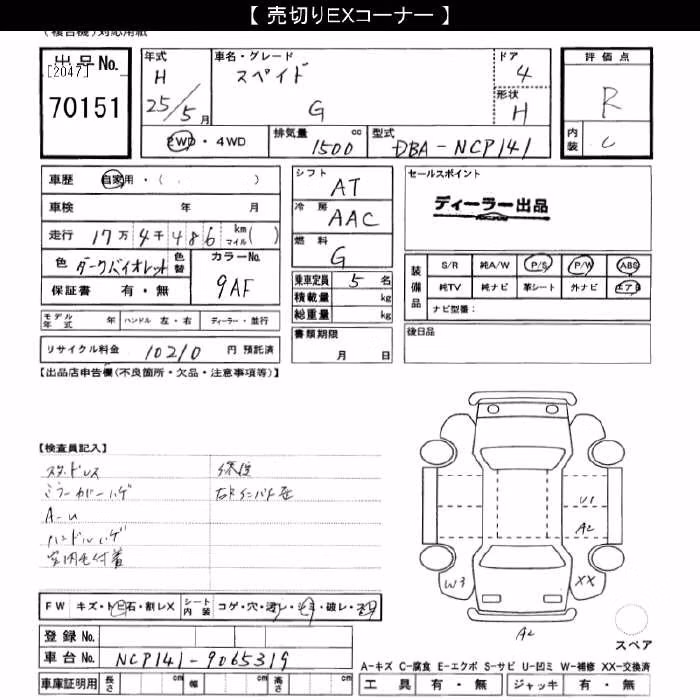 【 売切りEXコーナー 】
(複合機)対応用紙
出品No.
[2047]
70151
年式
H
25/5月
車名・グレード
スペイド
G
ドア
4
形状
H
評価点
R
内装
C
2WD・4WD
排気量 cc
1500
型式
DBA-NCP141
車歴 自家用・( )
車検 年 月
走行 17万4千486 km マイル( )
色 ダークバイオレット 色替
カラーNo.
9AF
保証書 有・無
モデル年式 年 ハンドル 左・右 ディーラー・並行
リサイクル料金 10210 円 預託済
シフト
AT
冷房
AAC
燃料
G
乗車定員 5 名
積載量 kg
総重量 kg
書類期限
月 日
セールスポイント
ディーラー出品
装備品
S/R 純A/W P/S P/W ABS
純TV 純ナビ 革シート 外ナビ エアB
ナビ型番:
後日品
【出品店申告欄(不良箇所・欠品・注意事項等)】
【検査員記入】
スタッドレス
ミラーカバーハゲ
A-U
ハンドルハゲ
室内毛付着
修復
U1
A2
W3
XX
A2
スペア
FW キズ・トビ石・割レX シート内装 コゲ・穴・汚レ・シミ・破レ・
登録 No.
車台 No. NCP141-9065319
車庫証明用 長さ cm 幅 cm 高さ cm
A-キズ C-腐食 E-エクボ S-サビ U-凹ミ W-補修 XX-交換済
工具 有・無 ジャッキ 有・無